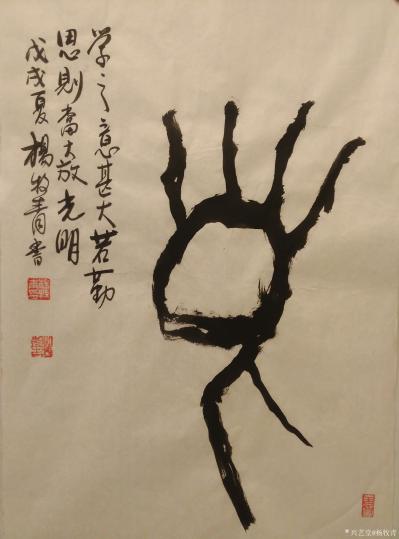 学之意甚大若勤
思则当大放光明
戊戌夏杨牧青書
兴艺堂@杨牧青